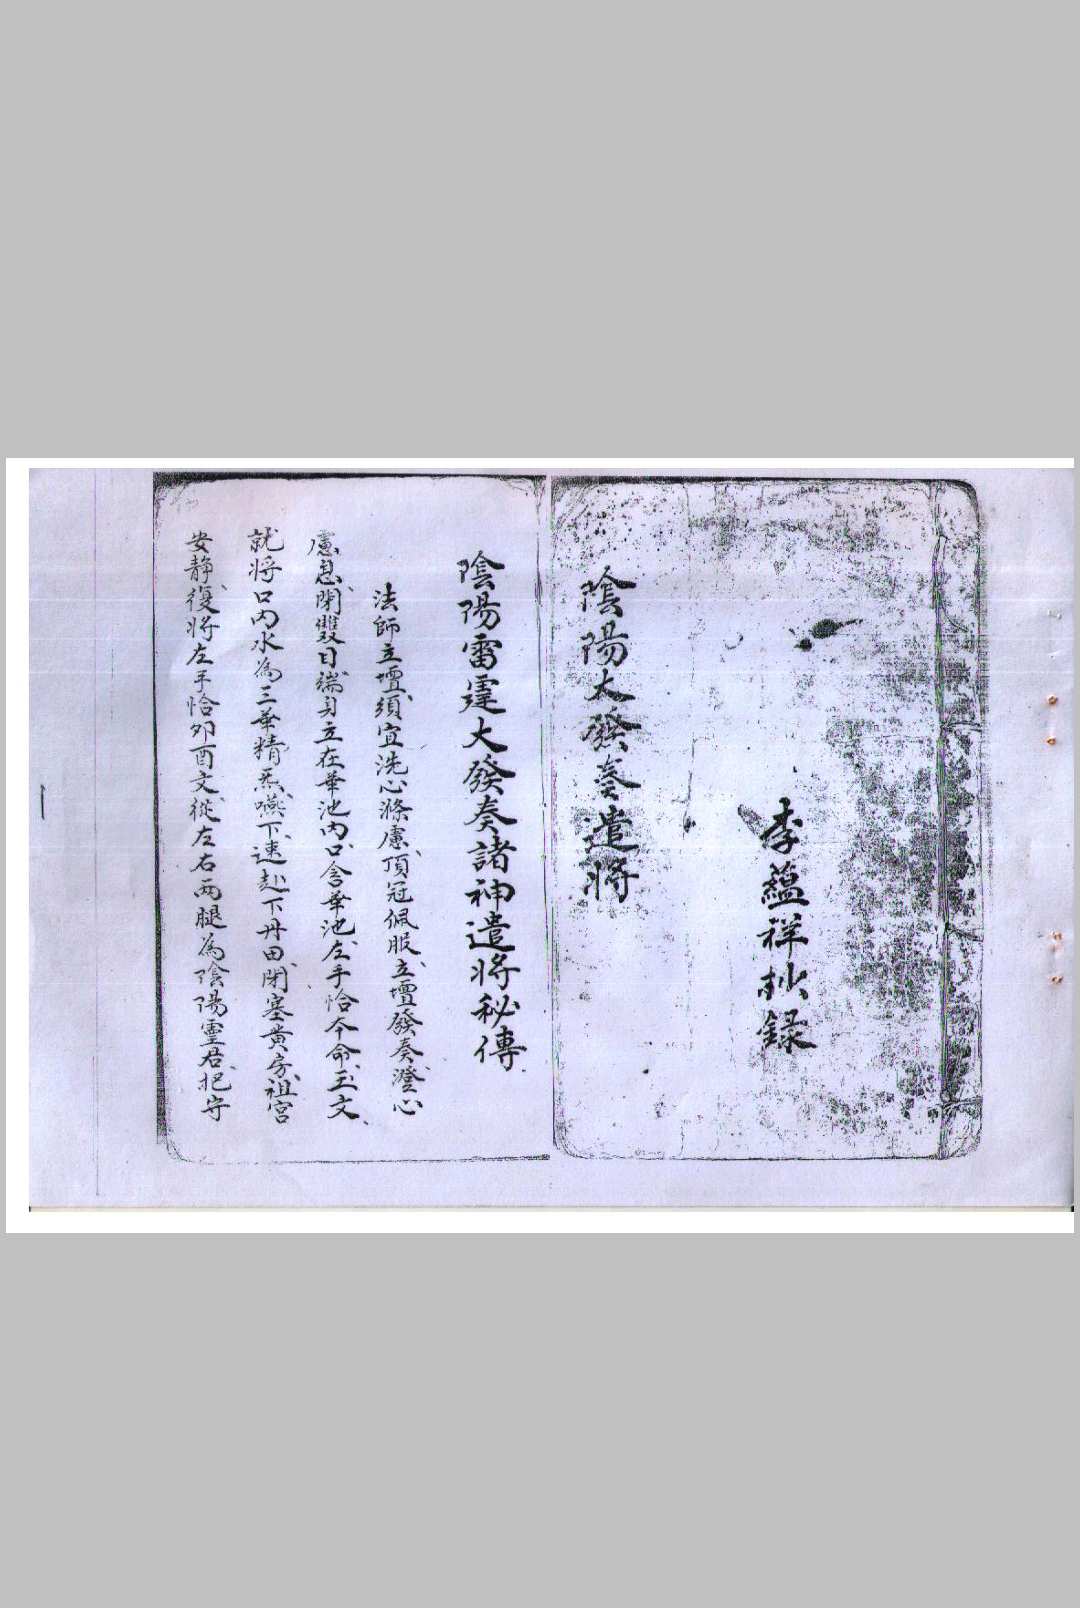 李蘊祥抄錄
陰陽大發奏遣將
陰陽雷霆大發奏諸神遣將秘傳
法師立壇須宜洗心滌慮頂冠佩服立壇發奏澄心
慮息閉雙目端身立在華池內口含華池左手恰本命玉文
就將口內水為三華精炁嚥下速赴下丹田閉塞黃房祖宮
安靜復將左手恰卯酉文從左右兩腿為陰陽靈君把守